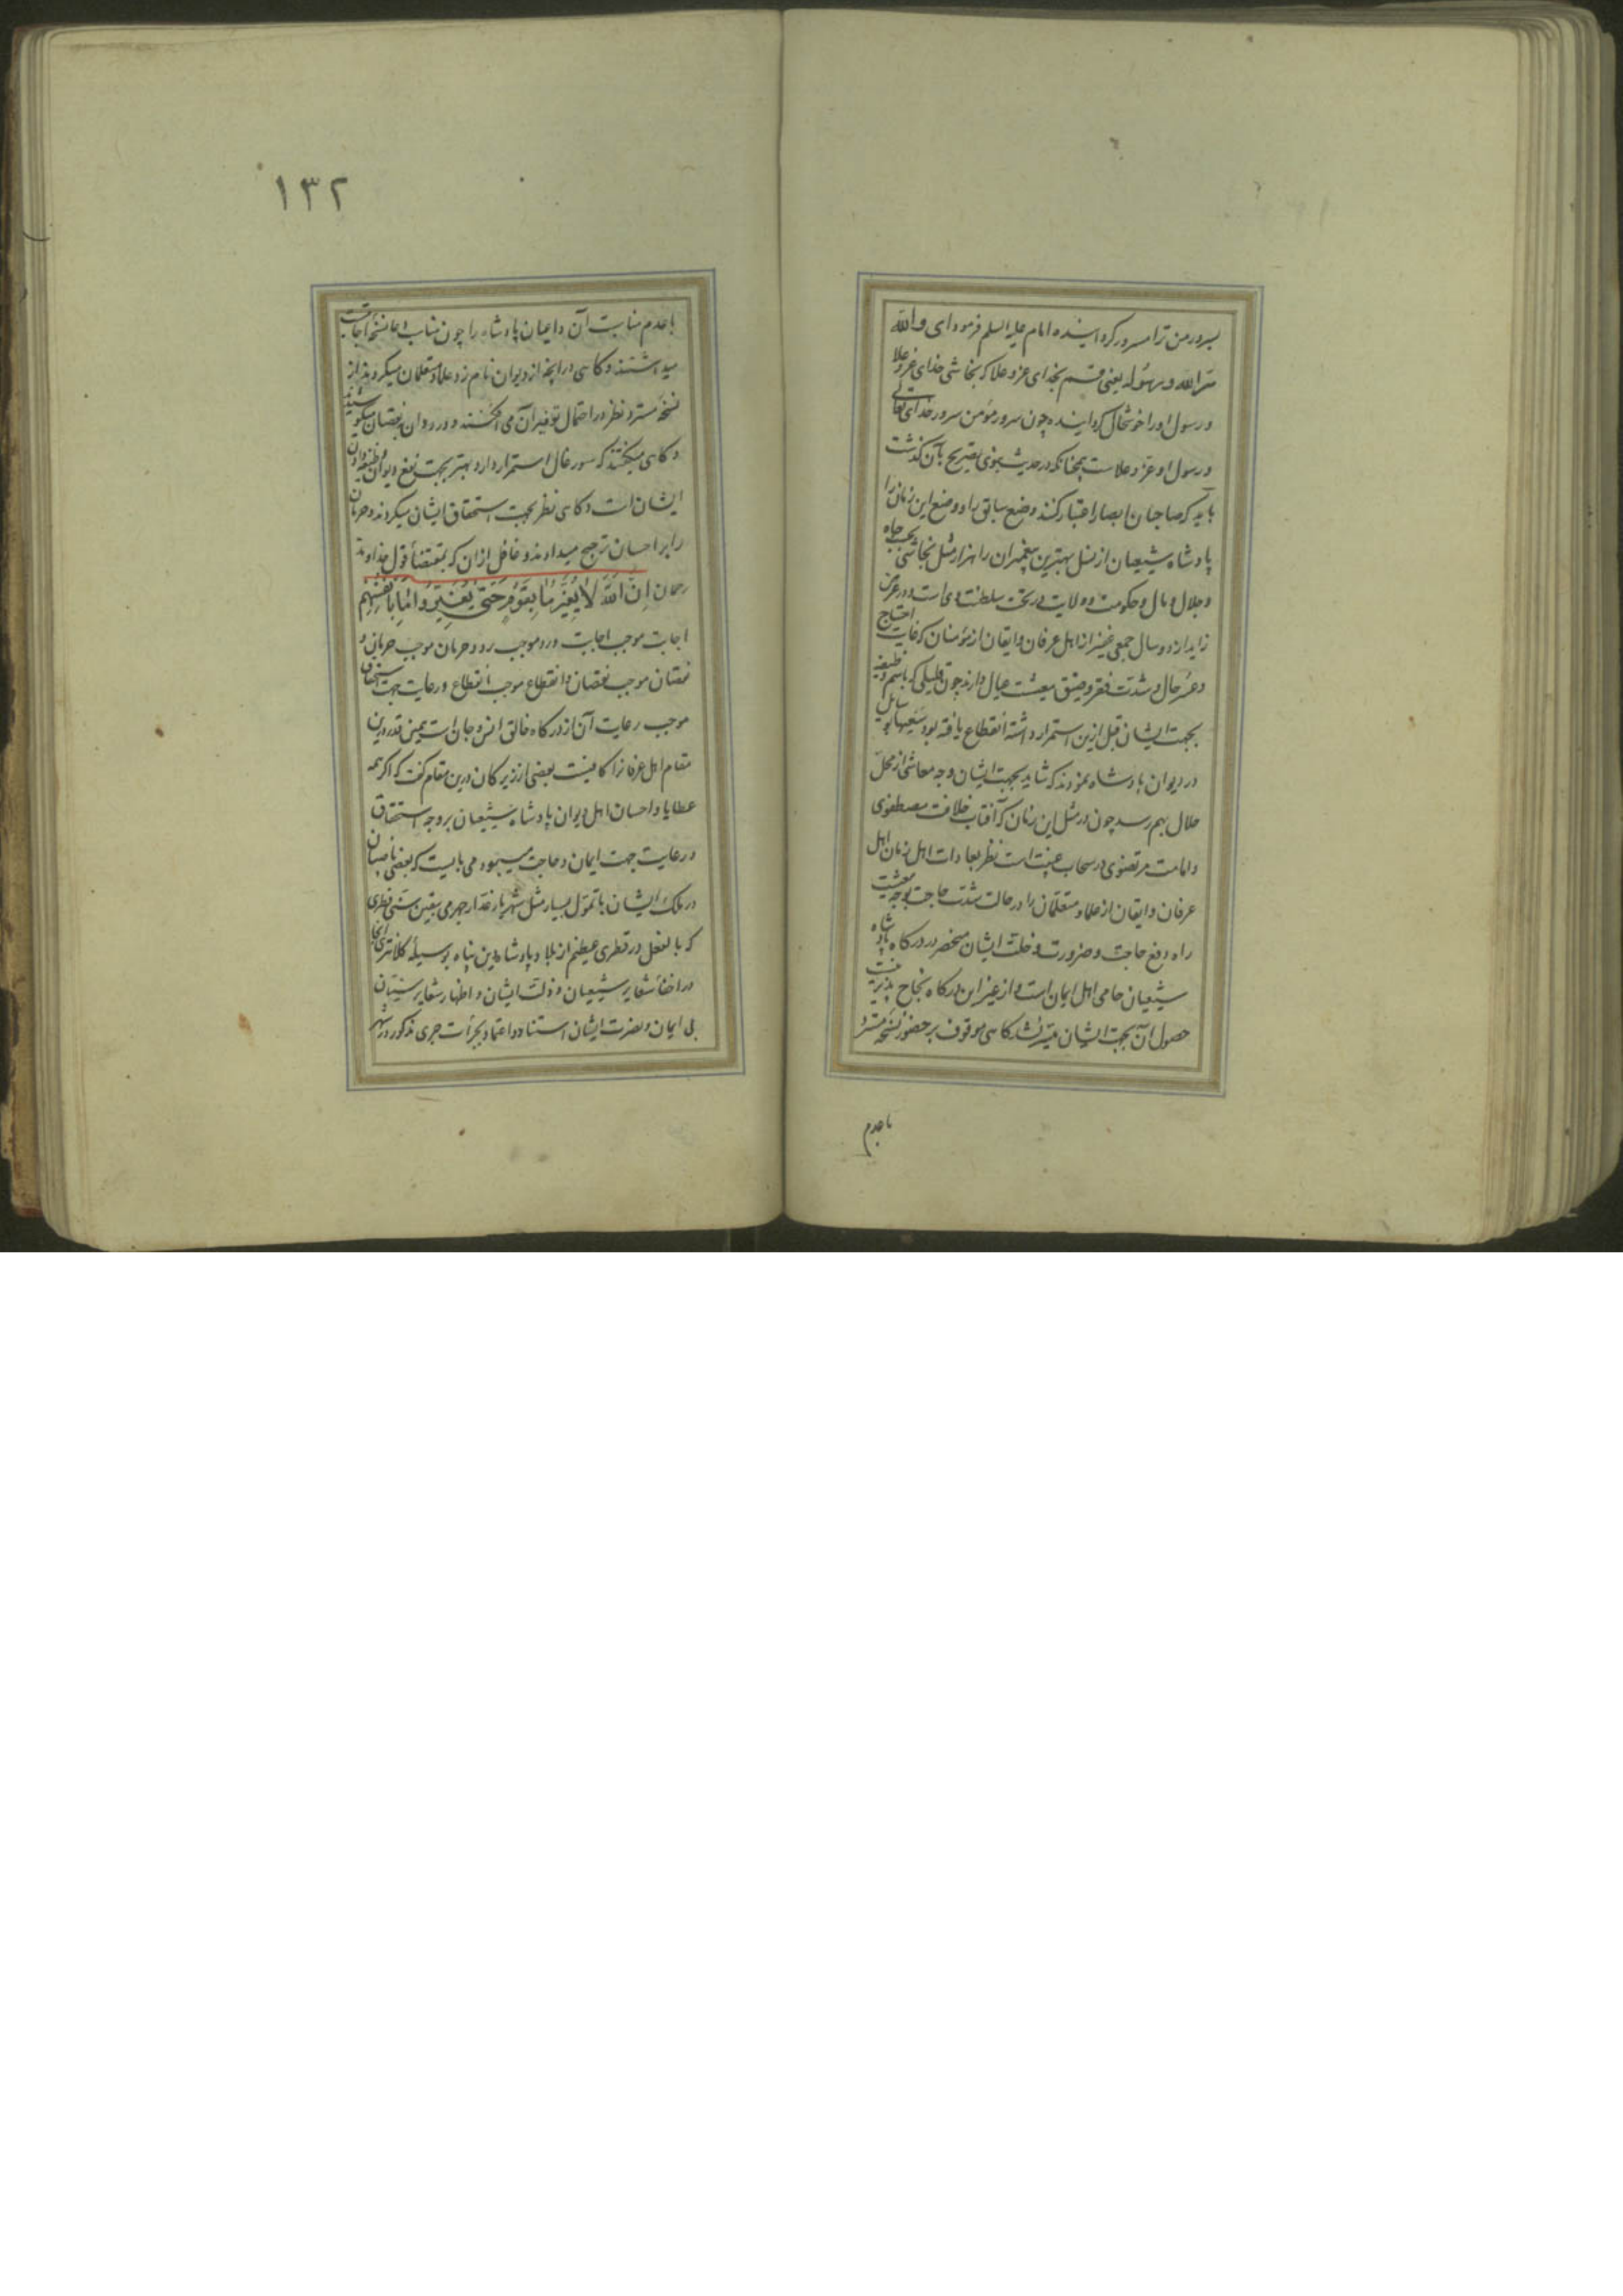 بسرور من ترا مسرور کرد اینده امام علیه السلم فرمود ای والله
سَرّ الله و رسوله یعنی قسم بخدای عز و علا که نجاشی خدای عز و علا
و رسول او را خوشحال کرد اینده چون سرور مؤمن سرور خدای تعالی
و رسول او عز و علا ست همچنانکه در حدیث نبوی تصریح بآن گذشت
باید که صاحبان ابصار اعتبار کنند وضع سابق را و وضع این زمان را
پادشاه شیعیان از نسل بهترین پیغمبران را هزار مثل نجاشی بحسب جاه
و جلال و مال و حکومت و ولایت در تحت سلطنت وی است و در عرض
زاید از دو سال جمعی غفیر از اهل عرفان و ایقان از مؤمنان که غایت احتیاج
و عسر حال و شدّت فقر و ضیق معیشت عیال دارند چون قلیلی که باسم وظیفه
بجهت ایشان قبل ازین استمرار داشته انقطاع یافته بود سعیها بوسایل
در دیوان پادشاه نمودند که شاید بجهت ایشان وجه معاشی از محل
حلال بهم رسد چون در مثل این زمان که آفتاب خلافت مصطفوی
و امامت مرتضوی در سحاب غیبت است نظر بعادات اهل زمان اهل
عرفان و ایقان از علما و متعلمان را در حالت شدّت حاجت بوجه معیشت
راه دفع حاجت و ضرورت و خلّت ایشان منحصر در درگاه پادشاه
شیعیان حامی اهل ایمان است و از غیر این درگاه نجاح پذیر نیست
حصول آن بجهت ایشان میسّر نشد گاهی موقوف بر حضور نسخه مسترد
باعدم
۱۳۲
باعدم مناسبت آن داعیان پادشاه را چون مناسب اما نسخه اجابت
میداشتند و گاهی در آنچه از دیوان نام زد علما و متعلمان میکردند از
نسخه مسترد نظر در احتمال توفیر آن می افکنند و در دوان نقصان میکوشیدند
و گاهی میگفتند که سورغال استمرار دارد بهتر بجهت نفع دیوان وظیفه دادن
ایشان است و گاهی نظر بجهت استحقاق ایشان میکردند و حرمان
را بر احسان ترجیح میدادند و غافل ازان که بمقتضأ قول خداوند
رحمان اِنَّ اللّٰهَ لَا یُغَیِّرُ مَا بِقَوْمٍ حَتّٰی یُغَیِّرُوا مَا بِاَنْفُسِهِمْ
اجابت موجب اجابت و رد موجب رد و حرمان موجب حرمان و
نقصان موجب نقصان و انقطاع موجب انقطاع و رعایت جهت استحقاق
موجب رعایت آن از درگاه خالق انس و جان است همین قدر درین
مقام اهل عرفان را کافیست بعضی از زیرکان درین مقام گفت که اگر همه
عطایا و احسان اهل دیوان پادشاه شیعیان بر وجه استحقاق
و رعایت جهت ایمان و حاجت میبود می بایست که بعضی ناصبیان
در ملک ایشان با تموّل بسیار مثل شهریار غدار جهرمی بیقین سنّی فطری
که بالفعل در قطری عظیم از بلاد پادشاه دین پناه بوسیله کلانتری آنجا
در اخفأ شعایر شیعیان و ذلّت ایشان و اظهار شعایر سنّیان
بی ایمان و نصرت ایشان استناد و اعتماد بجرأت جری مذکور در شهر